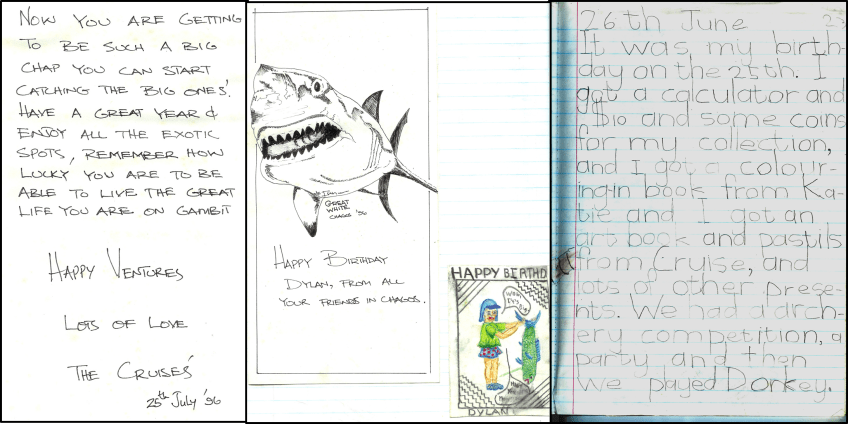 NOW YOU ARE GETTING
TO BE SUCH A BIG
CHAP YOU CAN START
CATCHING THE BIG ONES'.
HAVE A GREAT YEAR &
ENJOY ALL THE EXOTIC
SPOTS, REMEMBER HOW
LUCKY YOU ARE TO BE
ABLE TO LIVE THE GREAT
LIFE YOU ARE ON GAMBIT
HAPPY VENTURES
LOTS OF LOVE
THE CRUISES'
25th July '96
GREAT
WHITE
CHAGOS '96
HAPPY BIRTHDAY
DYLAN, FROM ALL
YOUR FRIENDS IN CHAGOS.
HAPPY BIRTHD
DYLAN
26th June 23
It was my birth-
day on the 25th. I
got a calculator and
$10 and some coins
for my collection,
and I got a colour-
ing-in book from Ka-
tie and I got an
art book and pastils
from Cruise, and
lots of other prese-
nts. We had a arch-
ery competition, a
party and then
We played Dorkey.